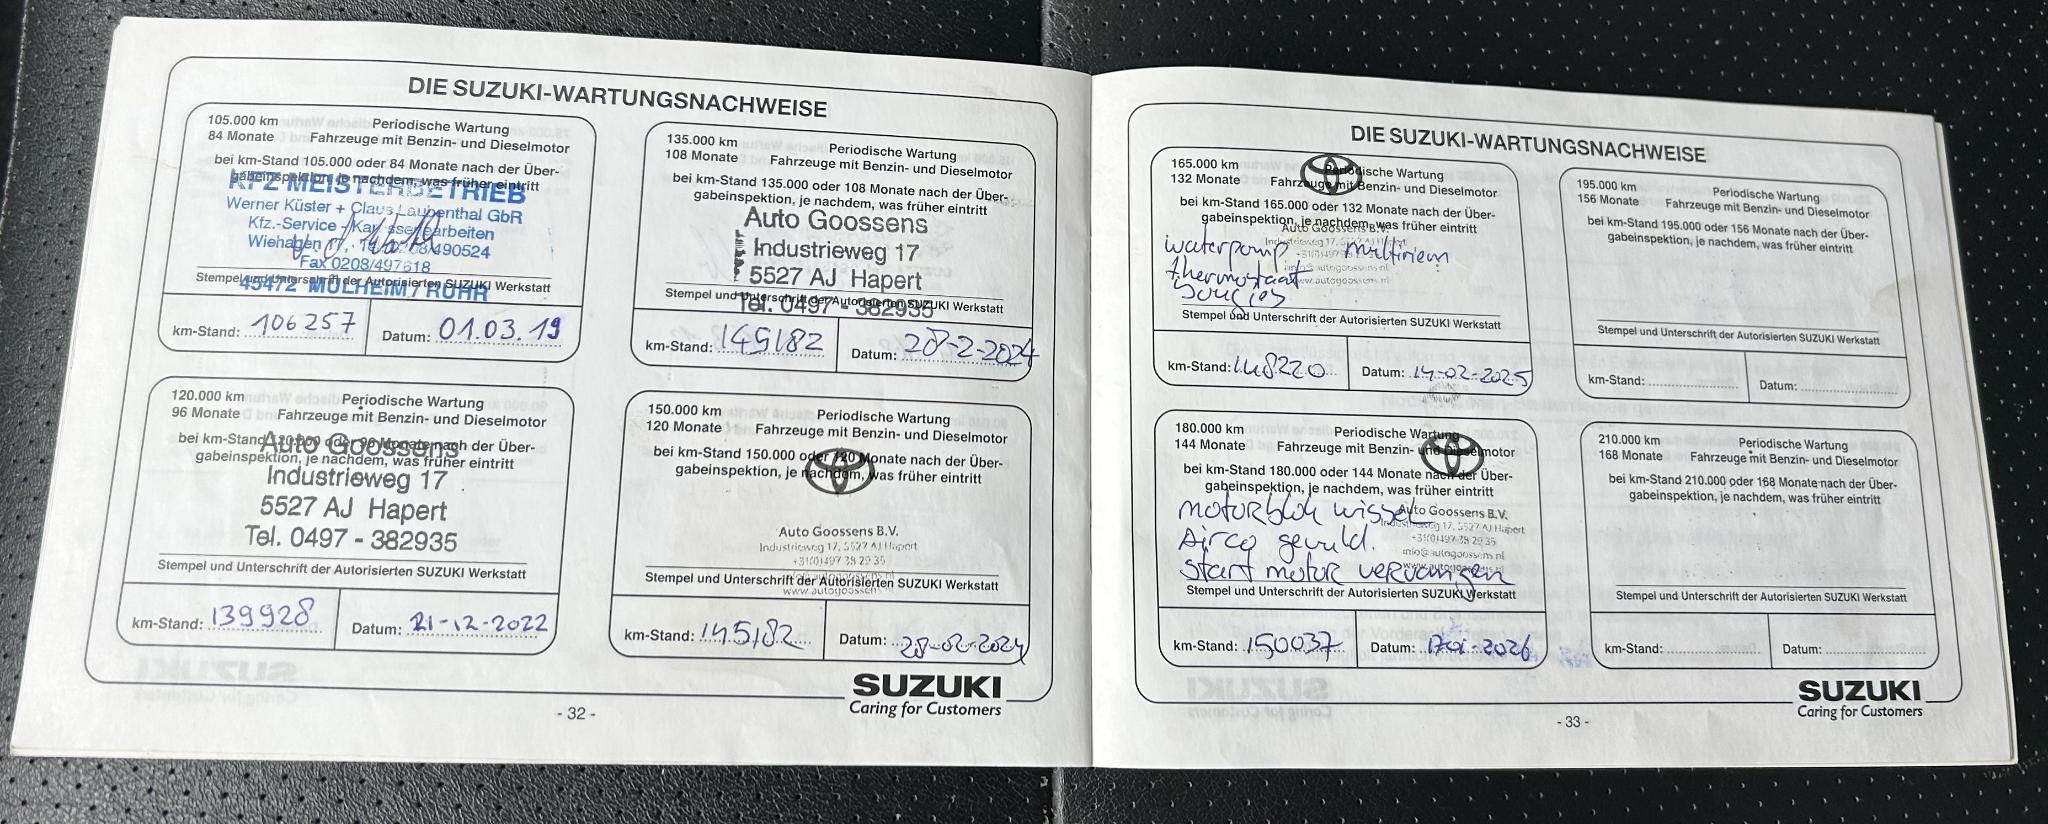 DIE SUZUKI-WARTUNGSNACHWEISE
105.000 km Periodische Wartung
84 Monate Fahrzeuge mit Benzin- und Dieselmotor
bei km-Stand 105.000 oder 84 Monate nach der Über-
gabeinspektion, je nachdem, was früher eintritt
KFZ-MEISTERBETRIEB
Werner Küster + Claus Laubenthal GbR
Kfz.-Service - Karosseriearbeiten
Wiehagen 17, Tel. 0208/490524
Fax 0208/497618
45472 MÜLHEIM / RUHR
Stempel und Unterschrift der Autorisierten SUZUKI Werkstatt
km-Stand: 106257 Datum: 01.03.19
120.000 km Periodische Wartung
96 Monate Fahrzeuge mit Benzin- und Dieselmotor
bei km-Stand 120.000 oder 96 Monate nach der Über-
gabeinspektion, je nachdem, was früher eintritt
Auto Goossens
Industrieweg 17
5527 AJ Hapert
Tel. 0497 - 382935
Stempel und Unterschrift der Autorisierten SUZUKI Werkstatt
km-Stand: 139928 Datum: 21-12-2022
135.000 km Periodische Wartung
108 Monate Fahrzeuge mit Benzin- und Dieselmotor
bei km-Stand 135.000 oder 108 Monate nach der Über-
gabeinspektion, je nachdem, was früher eintritt
Auto Goossens
Industrieweg 17
5527 AJ Hapert
Tel. 0497 - 382935
Stempel und Unterschrift der Autorisierten SUZUKI Werkstatt
km-Stand: 145182 Datum: 28-2-2024
150.000 km Periodische Wartung
120 Monate Fahrzeuge mit Benzin- und Dieselmotor
bei km-Stand 150.000 oder 120 Monate nach der Über-
gabeinspektion, je nachdem, was früher eintritt
Auto Goossens B.V.
Industrieweg 17, 5527 AJ Hapert
+31(0)497 38 29 35
info@autogoossens.nl
www.autogoossens.nl
Stempel und Unterschrift der Autorisierten SUZUKI Werkstatt
km-Stand: 145182 Datum: 28-02-2024
SUZUKI
Caring for Customers
- 32 -
DIE SUZUKI-WARTUNGSNACHWEISE
165.000 km Periodische Wartung
132 Monate Fahrzeuge mit Benzin- und Dieselmotor
bei km-Stand 165.000 oder 132 Monate nach der Über-
gabeinspektion, je nachdem, was früher eintritt
Auto Goossens B.V.
Industrieweg 17, 5527 AJ Hapert
+31(0)497 38 29 35
info@autogoossens.nl
www.autogoossens.nl
waterpomp multiriem
thermostaat
bougies
Stempel und Unterschrift der Autorisierten SUZUKI Werkstatt
km-Stand: 148220 Datum: 14-02-2025
180.000 km Periodische Wartung
144 Monate Fahrzeuge mit Benzin- und Dieselmotor
bei km-Stand 180.000 oder 144 Monate nach der Über-
gabeinspektion, je nachdem, was früher eintritt
Auto Goossens B.V.
Industrieweg 17, 5527 AJ Hapert
+31(0)497 38 29 35
info@autogoossens.nl
www.autogoossens.nl
motorblok wissel
Airco gevuld.
start motor vervangen
Stempel und Unterschrift der Autorisierten SUZUKI Werkstatt
km-Stand: 150037 Datum: 2026
195.000 km Periodische Wartung
156 Monate Fahrzeuge mit Benzin- und Dieselmotor
bei km-Stand 195.000 oder 156 Monate nach der Über-
gabeinspektion, je nachdem, was früher eintritt
Stempel und Unterschrift der Autorisierten SUZUKI Werkstatt
km-Stand: Datum:
210.000 km Periodische Wartung
168 Monate Fahrzeuge mit Benzin- und Dieselmotor
bei km-Stand 210.000 oder 168 Monate nach der Über-
gabeinspektion, je nachdem, was früher eintritt
Stempel und Unterschrift der Autorisierten SUZUKI Werkstatt
km-Stand: Datum:
SUZUKI
Caring for Customers
- 33 -